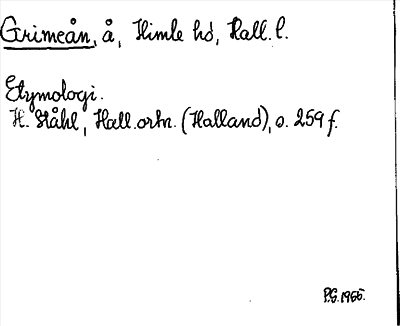 Grimeån, å, Himle hd, Hall. l.
Etymologi.
H. Ståhl, Hall. ortn. (Halland), s. 259 f.
P.G. 1955.